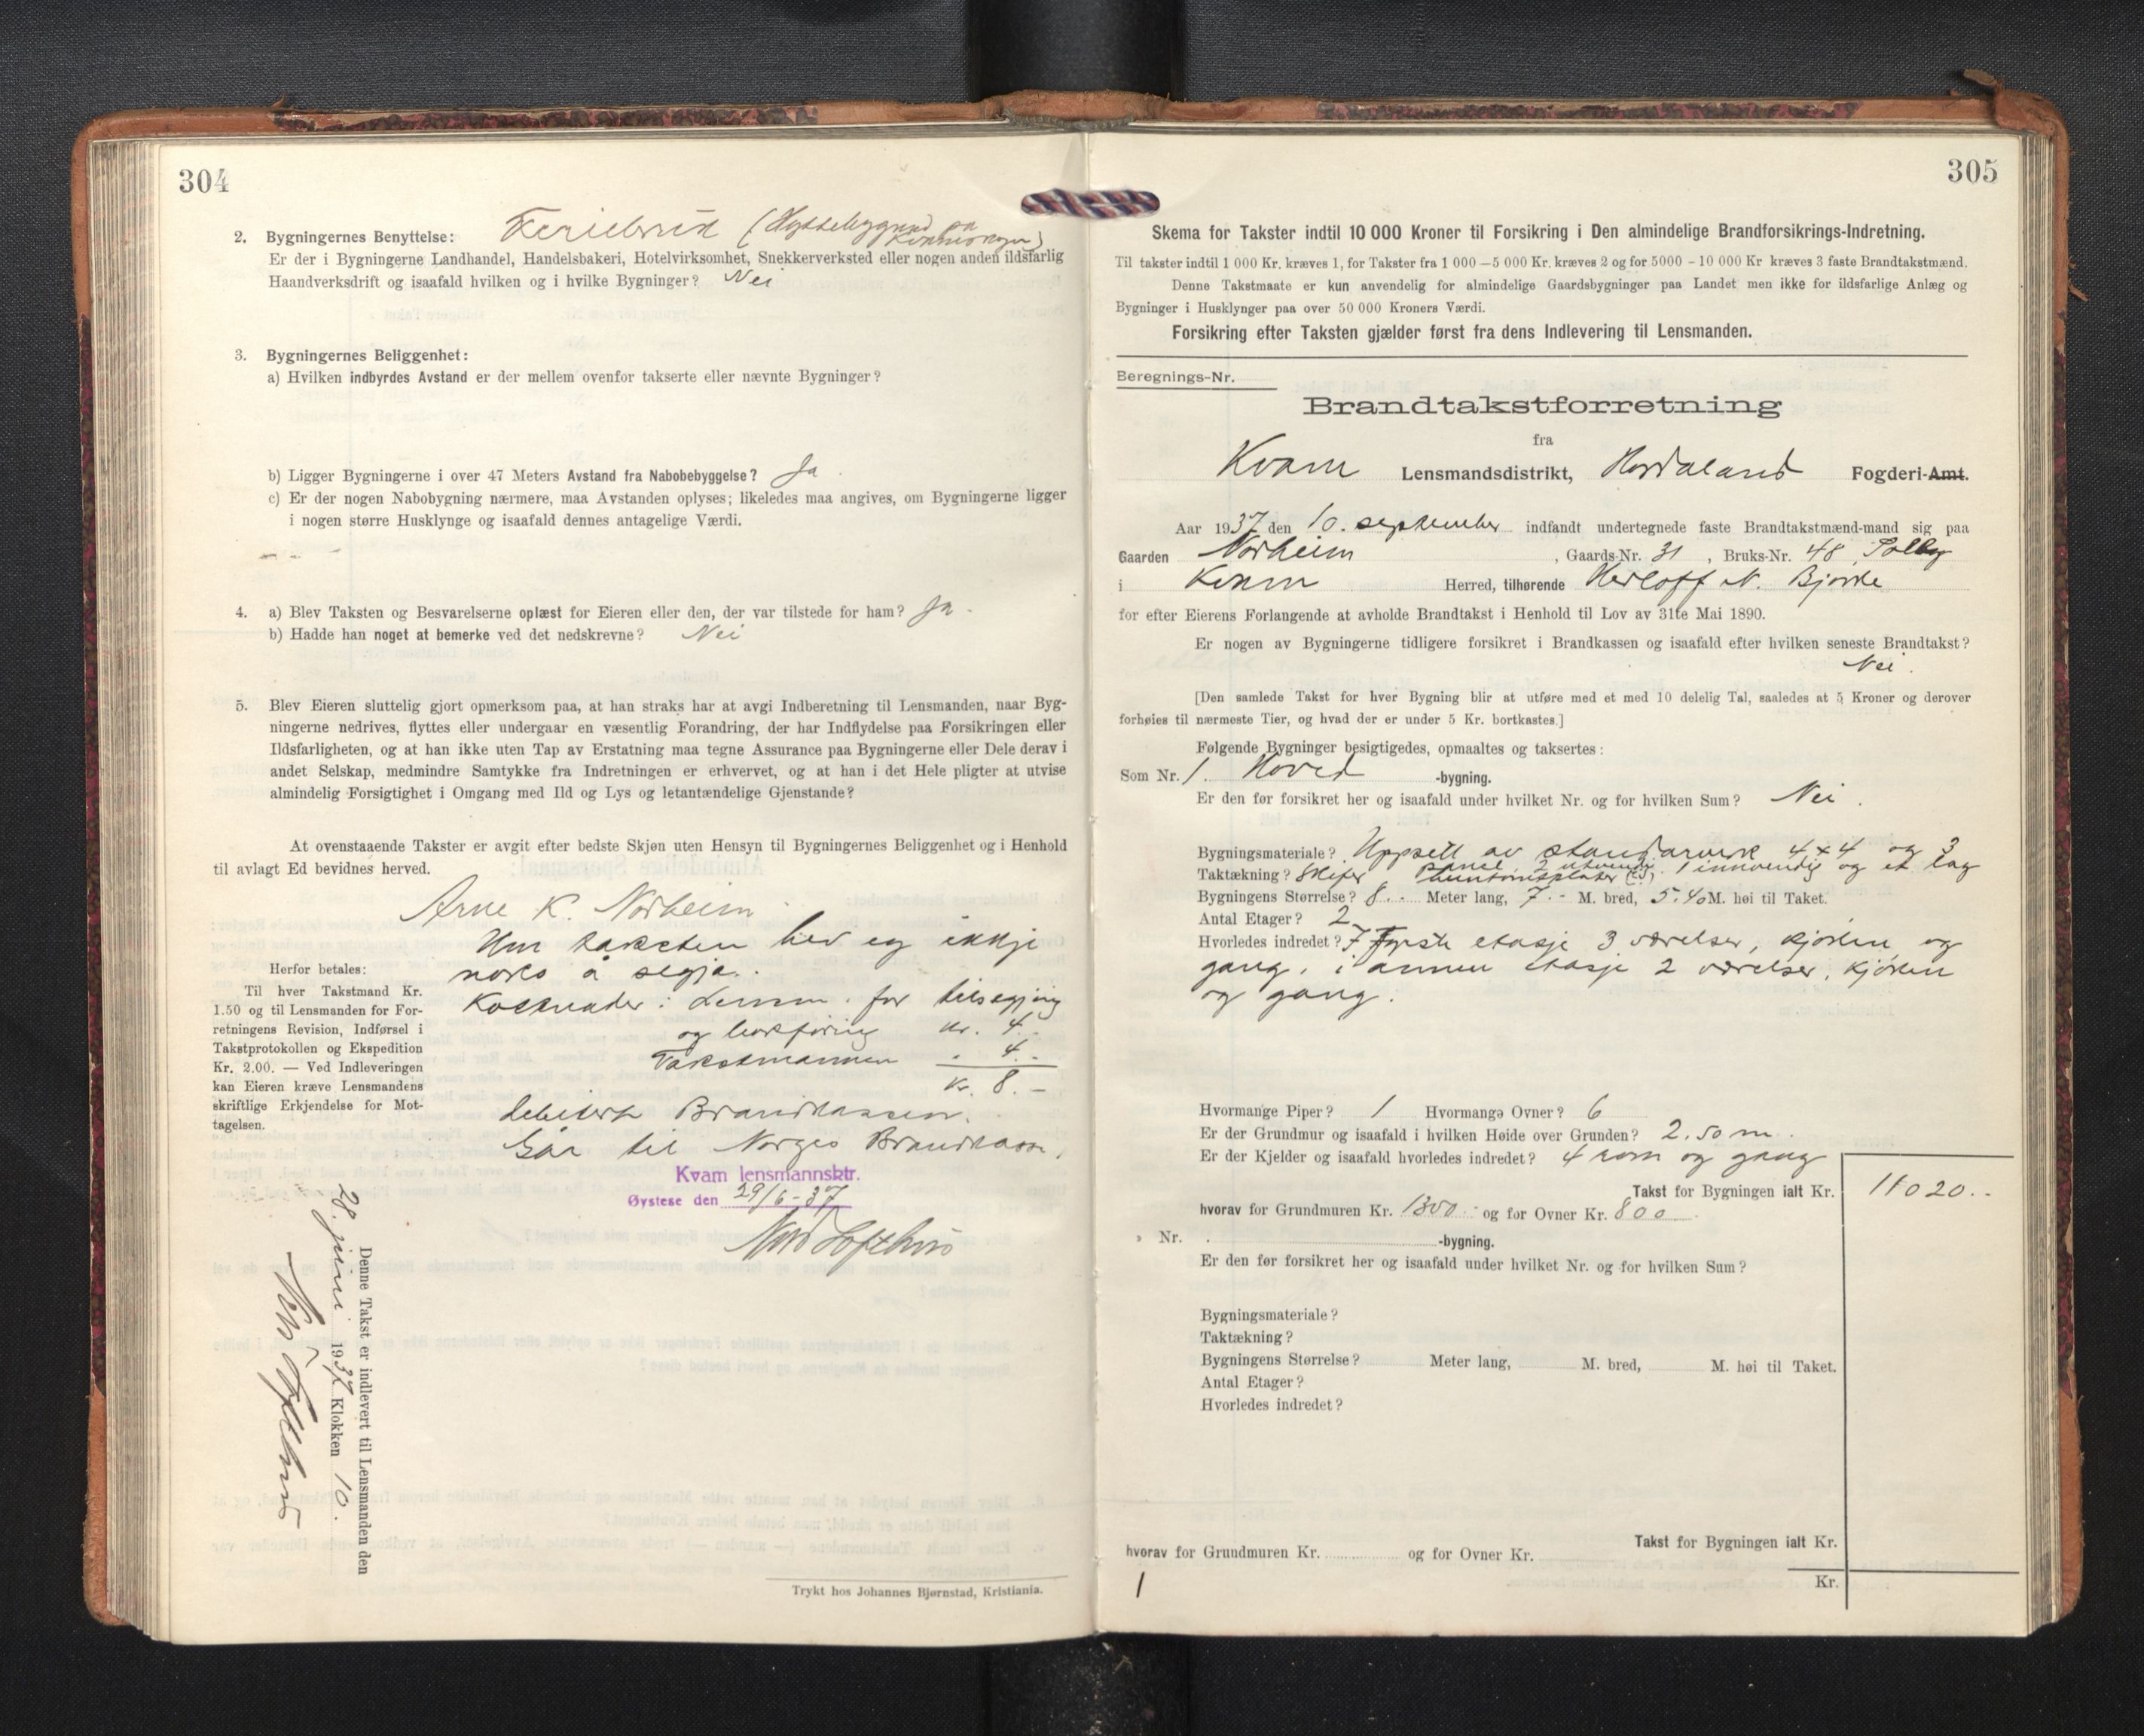 304
2. Bygningernes Benyttelse: Feriebrúk (Hyttebygnad på
Er der i Bygningerne Landhandel, Handelsbakeri, Hotelvirksomhet, Snekkerverksted eller nogen anden ildsfarlig
Haandverksdrift og isaafald hvilken og i hvilke Bygninger? Nei
3. Bygningernes Beliggenhet:
a) Hvilken indbyrdes Avstand er der mellem ovenfor takserte eller nævnte Bygninger?
b) Ligger Bygningerne i over 47 Meters Avstand fra Nabobebyggelse? Ja.
c) Er der nogen Nabobygning nærmere, maa Avstanden oplyses; likeledes maa angives, om Bygningerne ligger
i nogen større Husklynge og isaafald dennes antagelige Værdi.
- - -
4. a) Blev Taksten og Besvarelserne oplæst for Eieren eller den, der var tilstede for ham? Ja.
b) Hadde han noget at bemerke ved det nedskrevne? Nei
5. Blev Eieren sluttelig gjort opmerksom paa, at han straks har at avgi Indberetning til Lensmanden, naar Byg-
ningerne nedrives, flyttes eller undergaar en væsentlig Forandring, der har Indflydelse paa Forsikringen eller
Ildsfarligheten, og at han ikke uten Tap av Erstatning maa tegne Assurance paa Bygningerne eller Dele derav i
andet Selskap, medmindre Samtykke fra Indretningen er erhvervet, og at han i det Hele pligter at utvise
almindelig Forsigtighet i Omgang med Ild og Lys og letantændelige Gjenstande?
At ovenstaaende Takster er avgit efter bedste Skjøn uten Hensyn til Bygningernes Beliggenhet og i Henhold
til avlagt Ed bevidnes herved.
Arne K. Norheim
Um taksten hev eg ikkje
noko å segja.
Kostnader: Lensm. for tilsegjing
og bokføring kr. 4.-
Takstmannen - 4.-
kr. 8.-
debitert Brandkassen.
Går til Norges Brandkasse.
Kvam lensmannsktr.
Øystese den 29/6-37
Nils Lofthus
Herfor betales:
Til hver Takstmand Kr.
1.50 og til Lensmanden for For-
retningens Revision, Indførsel i
Takstprotokollen og Ekspedition
Kr. 2.00. — Ved Indleveringen
kan Eieren kræve Lensmandens
skriftlige Erkjendelse for Mot-
tagelsen.
Denne Takst er indlevert til Lensmanden den
28. juni 1937 Klokken 10.
Nils Lofthus
Trykt hos Johannes Bjørnstad, Kristiania.
305
Skema for Takster indtil 10 000 Kroner til Forsikring i Den almindelige Brandforsikrings-Indretning.
Til takster indtil 1 000 Kr. kræves 1, for Takster fra 1 000 — 5 000 Kr. kræves 2 og for 5000 - 10 000 Kr kræves 3 faste Brandtakstmænd.
Denne Takstmaate er kun anvendelig for almindelige Gaardsbygninger paa Landet men ikke for ildsfarlige Anlæg og
Bygninger i Husklynger paa over 50 000 Kroners Værdi.
Forsikring efter Taksten gjælder først fra dens Indlevering til Lensmanden.
Beregnings-Nr.
Brandtakstforretning
fra
Kvam Lensmandsdistrikt, Hordaland Fogderi-Amt.
Aar 1937 den 10. september indfandt undertegnede faste Brandtakstmænd-mand sig paa
Gaarden Norheim, Gaards-Nr. 31, Bruks-Nr. 48, Solbog
i Kvam Herred, tilhørende Herloff N. Bjørke
for efter Eierens Forlangende at avholde Brandtakst i Henhold til Lov av 31te Mai 1890.
Er nogen av Bygningerne tidligere forsikret i Brandkassen og isaafald efter hvilken seneste Brandtakst?
Nei.
[Den samlede Takst for hver Bygning blir at utføre med et med 10 delelig Tal, saaledes at 5 Kroner og derover
forhøies til nærmeste Tier, og hvad der er under 5 Kr. bortkastes.]
Følgende Bygninger besigtigedes, opmaaltes og taksertes:
Som Nr. 1. Hoved -bygning.
Er den før forsikret her og isaafald under hvilket Nr. og for hvilken Sum? Nei.
Bygningsmateriale? Uppsett av standarverk 4 x 4 og 3
panel, 2 utvendig 1 innvendig og et lag
Taktækning? Skifer
Bygningens Størrelse? 8.- Meter lang, 7.- M. bred, 5.40 M. høi til Taket.
Antal Etager? 2
Hvorledes indredet? I fyrste etasje 3 værelser, kjøken og
gang, i annen etasje 2 værelser, kjøken
og gang.
Hvormange Piper? 1 Hvormange Ovner? 6
Er der Grundmur og isaafald i hvilken Høide over Grunden? 2.50 m.
Er der Kjelder og isaafald hvorledes indredet? 4 rom og gang
Takst for Bygningen ialt Kr. 11020.-
hvorav for Grundmuren Kr. 1300.- og for Ovner Kr. 800
» Nr. -bygning.
Er den før forsikret her og isaafald under hvilket Nr. og for hvilken Sum?
Bygningsmateriale?
Taktækning?
Bygningens Størrelse? Meter lang, M. bred, M. høi til Taket.
Antal Etager?
Hvorledes indredet?
Takst for Bygningen ialt Kr.
hvorav for Grundmuren Kr. og for Ovner Kr.
Kr.
1